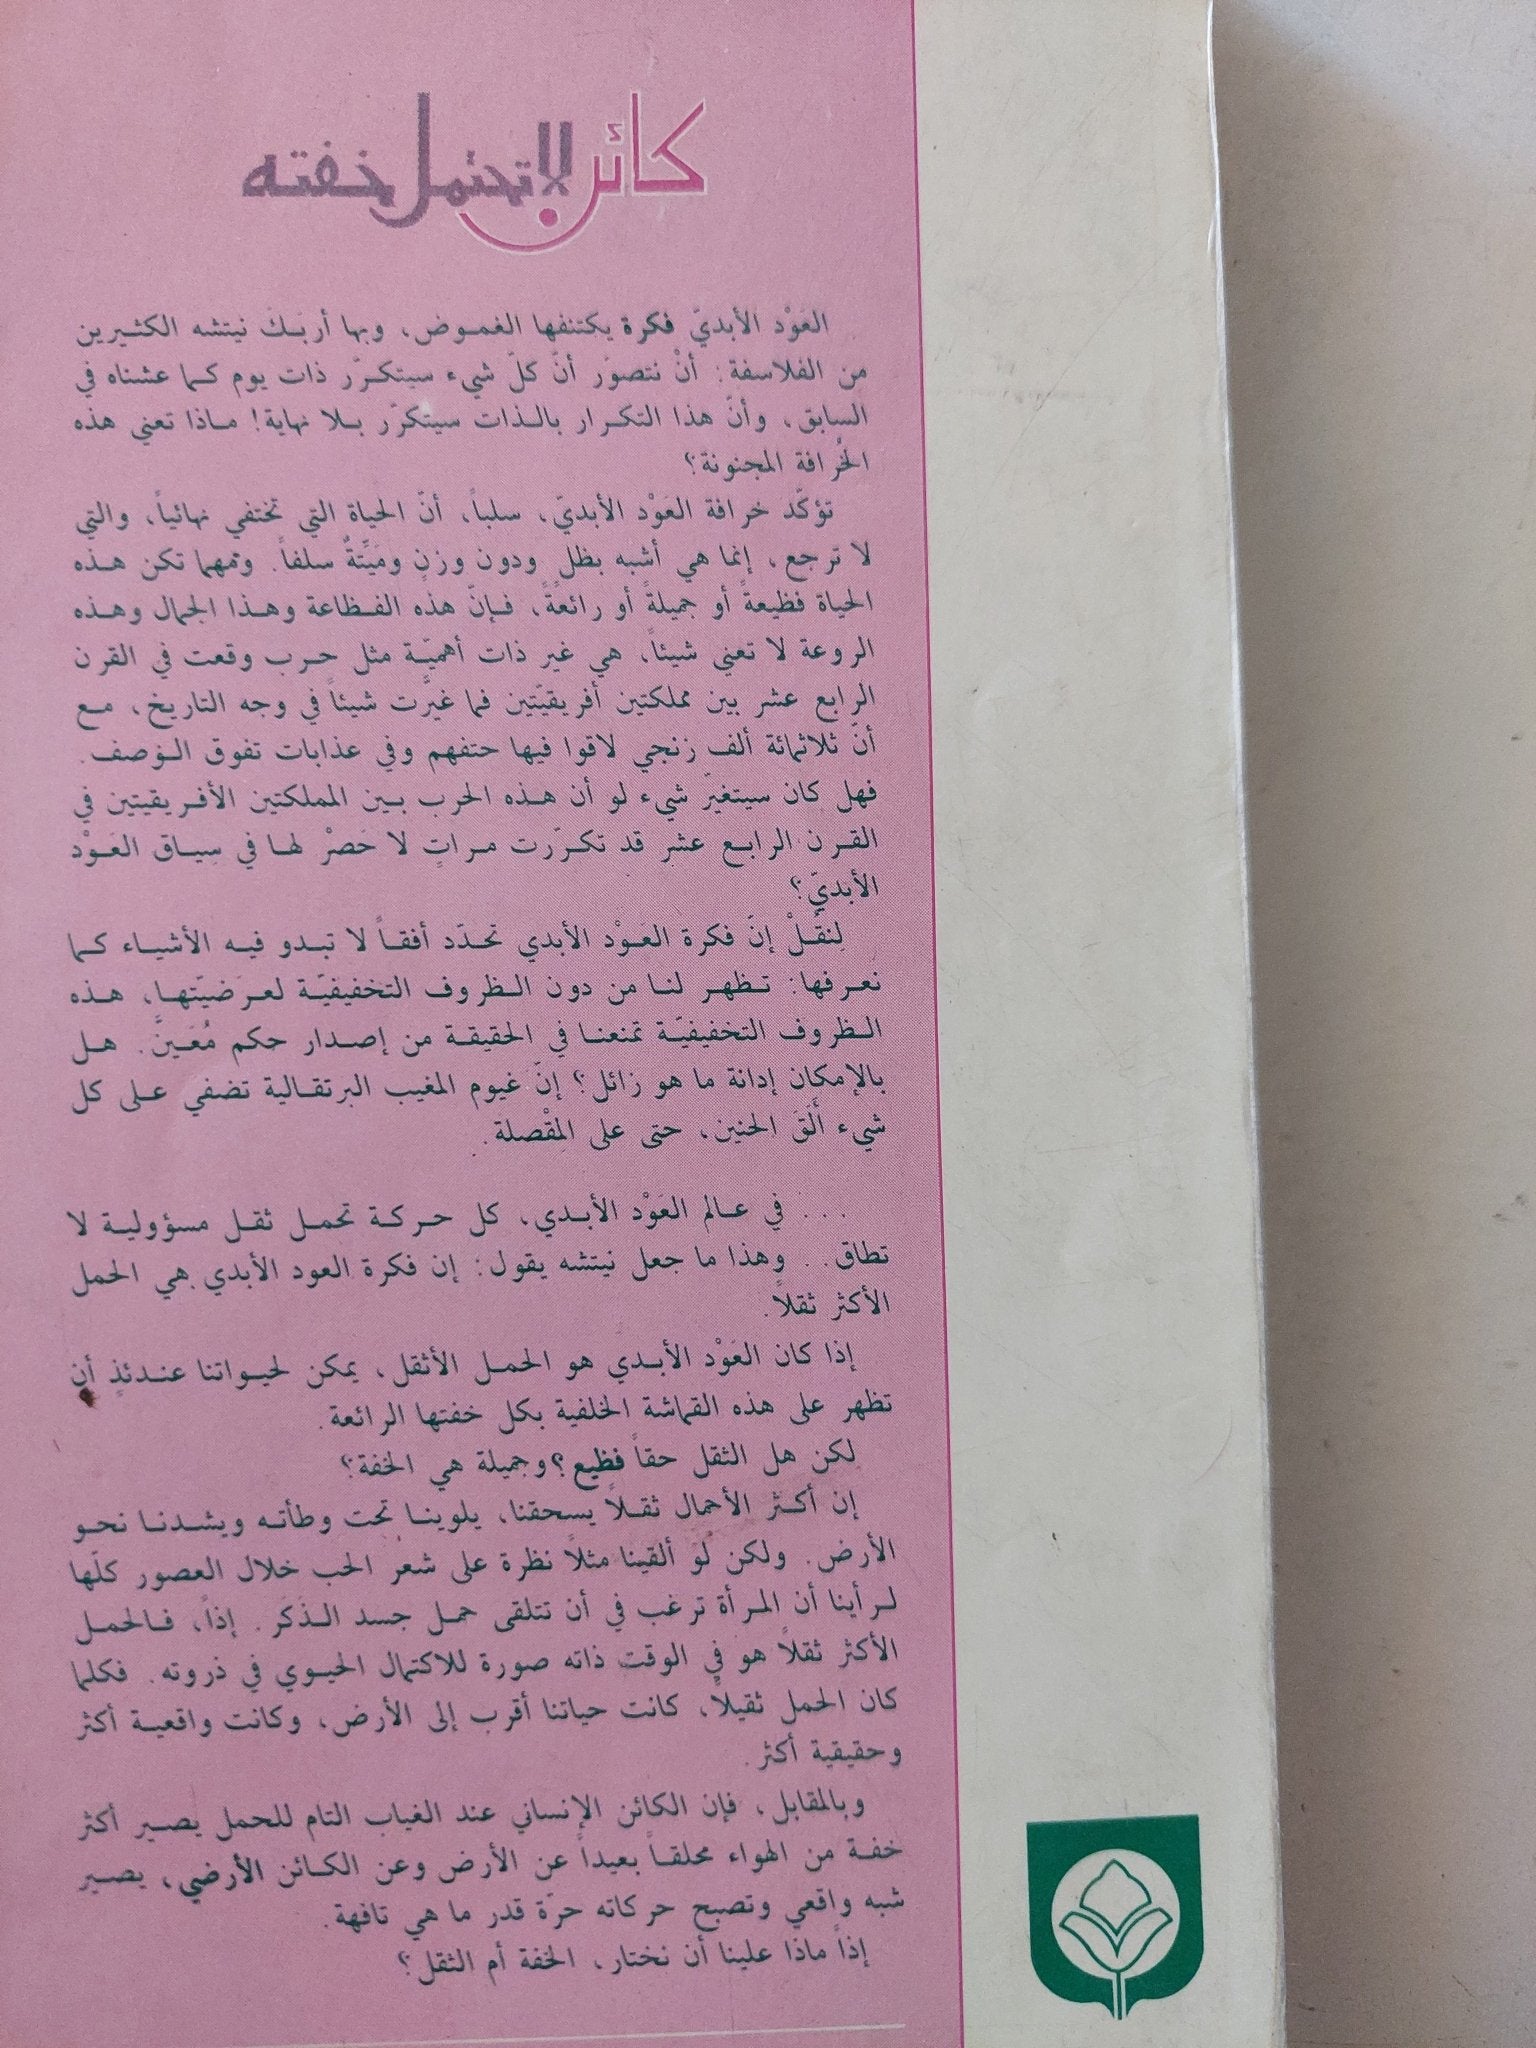 كائن لا تحتمل خفته
العَوْد الأبديّ فكرة يكتنفها الغموض، وبها أربَكَ نيتشه الكثيرين
من الفلاسفة: أنْ نتصوّر أنّ كلّ شيء سيتكرّر ذات يوم كما عشناه في
السابق، وأنّ هذا التكرار بالذات سيتكرّر بلا نهاية! ماذا تعني هذه
الخُرافة المجنونة؟
تؤكّد خرافة العَوْد الأبديّ، سلباً، أنّ الحياة التي تختفي نهائياً، والتي
لا ترجع، إنما هي أشبه بظل ودون وزنٍ ومَيِّتَةٌ سلفاً. ومهما تكن هذه
الحياة فظيعةً أو جميلةً أو رائعةً، فإنّ هذه الفظاعة وهذا الجمال وهذه
الروعة لا تعني شيئاً، هي غير ذات أهميّة مثل حرب وقعت في القرن
الرابع عشر بين مملكتين أفريقيّتين فما غيرَّت شيئاً في وجه التاريخ، مع
أنّ ثلاثمائة ألف زنجي لاقوا فيها حتفهم وفي عذابات تفوق الوَصف.
فهل كان سيتغيّر شيء لو أن هذه الحرب بين المملكتين الأفريقيتين في
القرن الرابع عشر قد تكرّرت مراتٍ لا حَصْرْ لها في سِياق العَوْد
الأبديّ؟
لِنقُلْ إنّ فكرة العَوْد الأبدي تحدّد أفقاً لا تبدو فيه الأشياء كما
نعرفها: تظهر لنا من دون الظروف التخفيفيّة لعرَضيّتها، هذه
الظروف التخفيفيّة تمنعنا في الحقيقة من إصدار حكم مُعَينَّ. هل
بالإمكان إدانة ما هو زائل؟ إنّ غيوم المغيب البرتقالية تضفي على كل
شيء أَلَقَ الحنين، حتى على المِقْصلة.
... في عالم العَوْد الأبدي، كل حركة تحمل ثقل مسؤولية لا
تطاق.. وهذا ما جعل نيتشه يقول: إن فكرة العود الأبدي هي الحمل
الأكثر ثقلاً.
إذا كان العَوْد الأبدي هو الحمل الأثقل، يمكن لحيواتنا عندئذٍ أن
تظهر على هذه القماشة الخلفية بكل خفتها الرائعة.
لكن هل الثقل حقاً فظيع؟ وجميلة هي الخفة؟
إن أكثر الأحمال ثقلاً يسحقنا، يلوينا تحت وطأته ويشدنا نحو
الأرض. ولكن لو ألقينا مثلاً نظرة على شعر الحب خلال العصور كلّها
لرأينا أن المرأة ترغب في أن تتلقى حمل جسد الذكر. إذاً، فالحمل
الأكثر ثقلاً هو في الوقت ذاته صورة للاكتمال الحيوي في ذروته. فكلما
كان الحمل ثقيلاً، كانت حياتنا أقرب إلى الأرض، وكانت واقعية أكثر
وحقيقية أكثر.
وبالمقابل، فإن الكائن الإنساني عند الغياب التام للحمل يصير أكثر
خفة من الهواء محلقاً بعيداً عن الأرض وعن الكائن الأرضي، يصير
شبه واقعي وتصبح حركاته حرّة قدر ما هي تافهة.
إذاً ماذا علينا أن نختار، الخفة أم الثقل؟